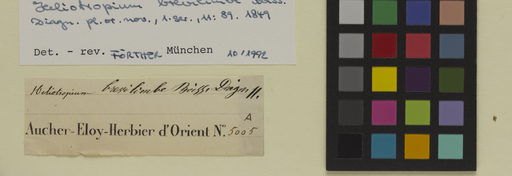 Heliotropium brevilimbe Boiss.
Diagn. pl. or. nov., 1. ser., 11: 89. 1849
Det. - rev. FÖRTHER München 10/1992
Heliotropium brevilimbe Boiss. Diagn. 11.
A
Aucher-Eloy-Herbier d'Orient N° 5005